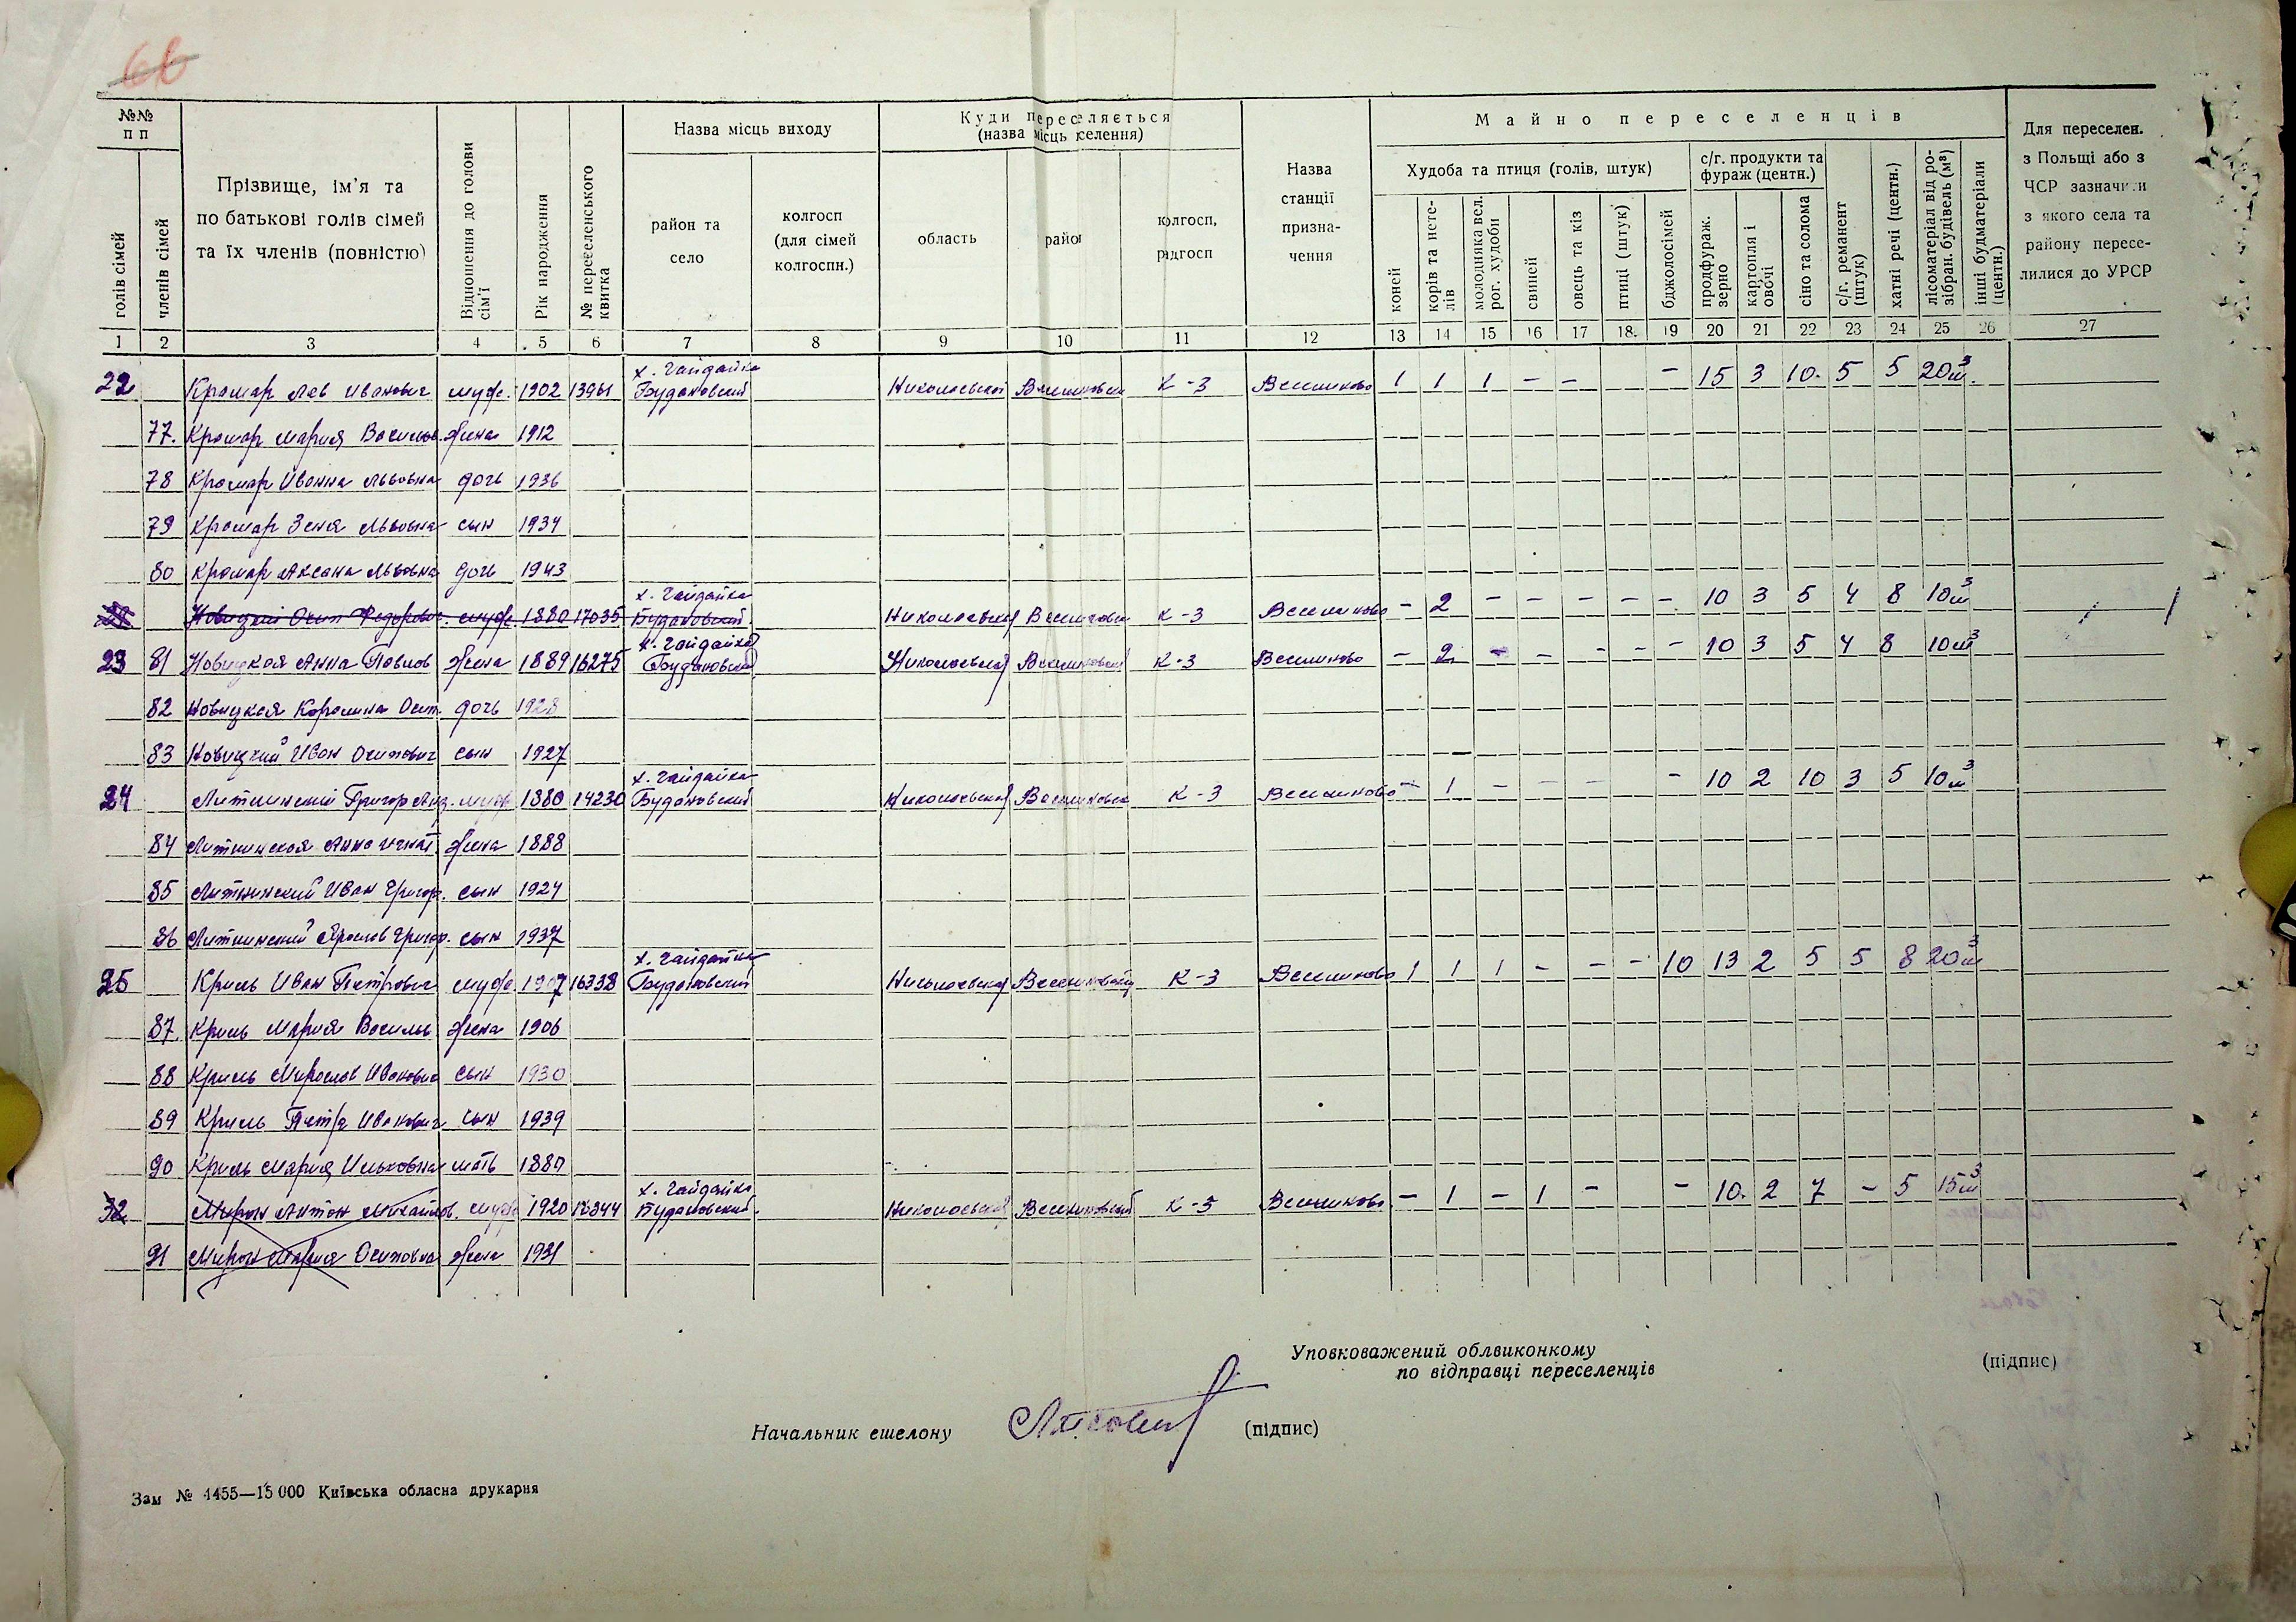 6б
№№ п п
Назва місць виходу
Куди переселяється
(назва місць вселення)
Майно переселенців
Прізвище, ім'я та
по батькові голів сімей
та їх членів (повністю)
голів сімей
членів сімей
Відношення до голови сім'ї
Рік народження
№ переселенського квитка
район та
село
колгосп
(для сімей
колгоспн.)
область
район
колгосп,
радгосп
Назва
станції
призна-
чення
Худоба та птиця (голів, штук)
с/г. продукти та
фураж (центн.)
коней
корів та нете-
лів
молодняка вел.
рог. худоби
свиней
овець та кіз
птиці (штук)
бджолосімей
продфураж.
зерно
картопля і
овочі
сіно та солома
с/г. реманент
(штук)
хатні речі (центн.)
лісоматеріал від ро-
зібран. будівель (м³)
інші будматеріали
(центн.)
Для переселен.
з Польщі або з
ЧСР зазначити
з якого села та
району пересе-
лилися до УРСР
1 2 3 4 5 6 7 8 9 10 11 12 13 14 15 16 17 18 19 20 21 22 23 24 25 26 27
х. Гайдайка
22 Крамар Лев Иванович муж. 1902 13961 Будановский Николаевской К-3 1 1 1 - - - 15 3 10. 5 5 20м³.
77. Крамар Мария Васильов. жена 1912
78 Крамар Иванна Львовна дочь 1936
79 Крамар Зеня Львовна сын 1934
80 Крамар Аксана Львовна дочь 1943
х. Гайдайка
Новицкий Осип Федорович муж. 1880 17035 Будановский Николаевской К-3 - 2 - - - - - 10 3 5 4 8 10м³
х. Гайдайка
23 81 Новицкая Анна Павлов жена 1889 16275 Будановский Николаевской К-3 - 2 - - - - - 10 3 5 4 8 10м³
82 Новицкая Каролина Осип. дочь 1928
83 Новицкий Иван Осипович сын 1927
х. Гайдайка
24 Григор муж 1880 14230 Будановский Николаевской К-3 - 1 - - - - 10 2 10 3 5 10м³
84 Анна жена 1888
85 Иван Григор. сын 1924
86 Григор. сын 1937
х. Гайдайка
25 Криль Иван Петрович муж 1907 16338 Будановский Николаевской К-3 1 1 1 - - - 10 13 2 5 5 8 20м³
87. Криль Мария Васильв жена 1906
88 Криль Мирослав Иванович сын 1930
89 Криль Иванович сын 1939
90 Криль Мария Ильковна мать 1880
х. Гайдайка
32 Мирон Антон Михайлов. муж 1920 Будановский Николаевской К-3 - 1 - 1 - - 10. 2 7 - 5 15м³
91 Мирон Мария Осиповна жена
Уповноважений облвиконкому
по відправці переселенців
(підпис)
Начальник ешелону
(підпис)
Зам № 4455—15 000 Київська обласна друкарня